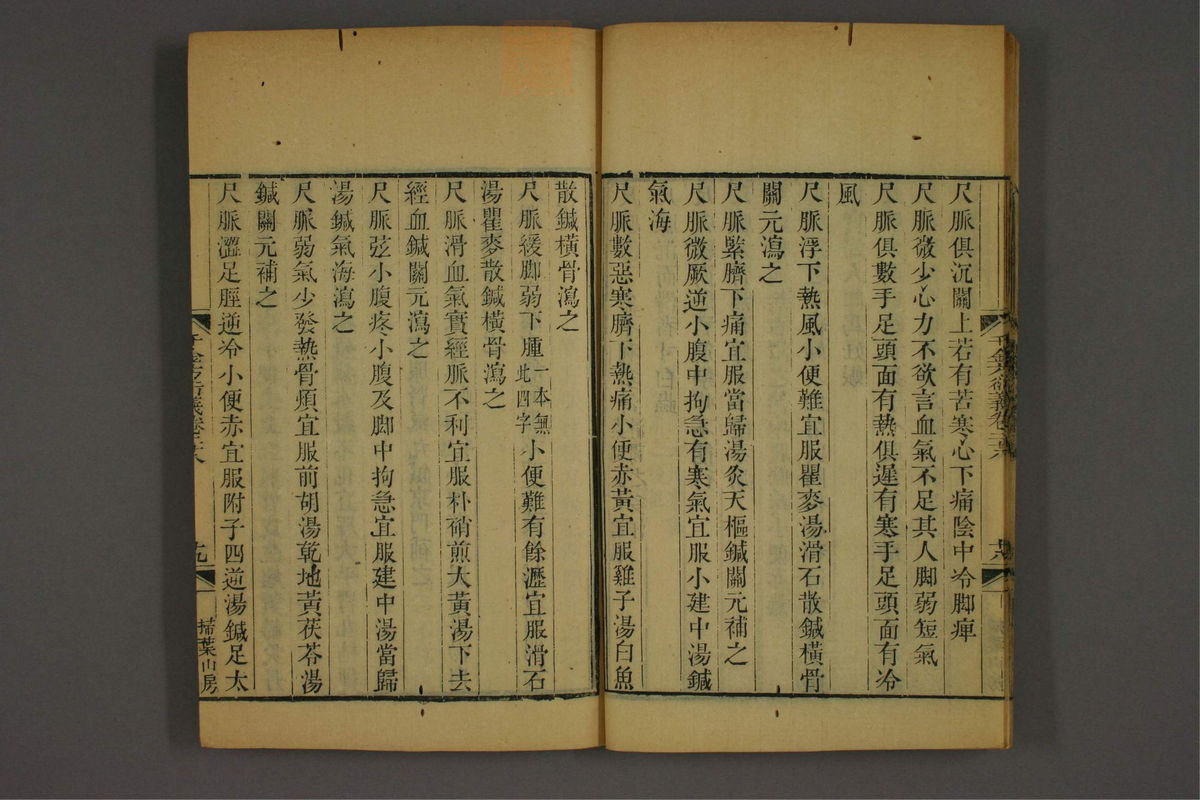 尺脈俱沉關上若有苦寒心下痛陰中冷脚痺
尺脈微少心力不欲言血氣不足其人脚弱短氣
尺脈俱數手足頭面有熱俱遲有寒手足頭面有冷
風
尺脈浮下熱風小便難宜服瞿麥湯滑石散鍼橫骨
關元瀉之
尺脈緊臍下痛宜服當歸湯灸天樞鍼關元補之
尺脈微厥逆小腹中拘急有寒氣宜服小建中湯鍼
氣海
尺脈數惡寒臍下熱痛小便赤黃宜服雞子湯白魚
散鍼橫骨瀉之
尺脈緩脚弱下腫一本無此四字小便難有餘瀝宜服滑石
湯瞿麥散鍼橫骨瀉之
尺脈滑血氣實經脈不利宜服朴硝煎大黃湯下去
經血鍼關元瀉之
尺脈弦小腹疼小腹及脚中拘急宜服建中湯當歸
湯鍼氣海瀉之
尺脈弱氣少發熱骨煩宜服前胡湯乾地黃茯苓湯
鍼關元補之
尺脈濇足脛逆冷小便赤宜服附子四逆湯鍼足太
千金方衍義卷二十八
十九
掃葉山房